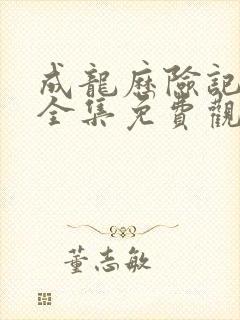 成龍歷險記
全集免費觀
董志敏